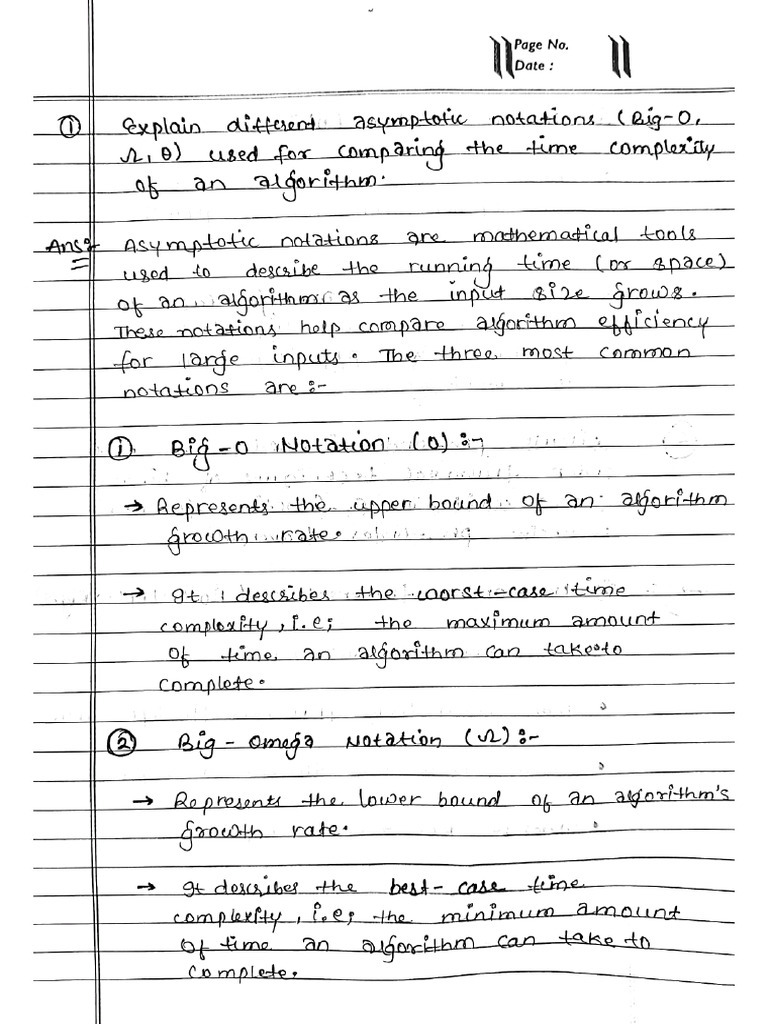 Page No.
Date :
① Explain different asymptotic notations (Big-O,
Ω, θ) used for comparing the time complexity
of an algorithm.
Ans:- Asymptotic notations are mathematical tools
used to describe the running time (or space)
of an algorithm as the input size grows.
These notations help compare algorithm efficiency
for large inputs. The three most common
notations are :-
① Big-O Notation (O) :-
→ Represents the upper bound of an algorithm
growth rate.
→ It describes the worst-case time
complexity, i.e; the maximum amount
of time an algorithm can take to
complete.
② Big-Omega Notation (Ω) :-
→ Represents the lower bound of an algorithm's
growth rate.
→ It describes the best-case time
complexity, i.e; the minimum amount
of time an algorithm can take to
complete.